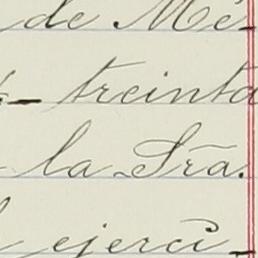 de Mé-
treinta
la Sra.
ejerci-